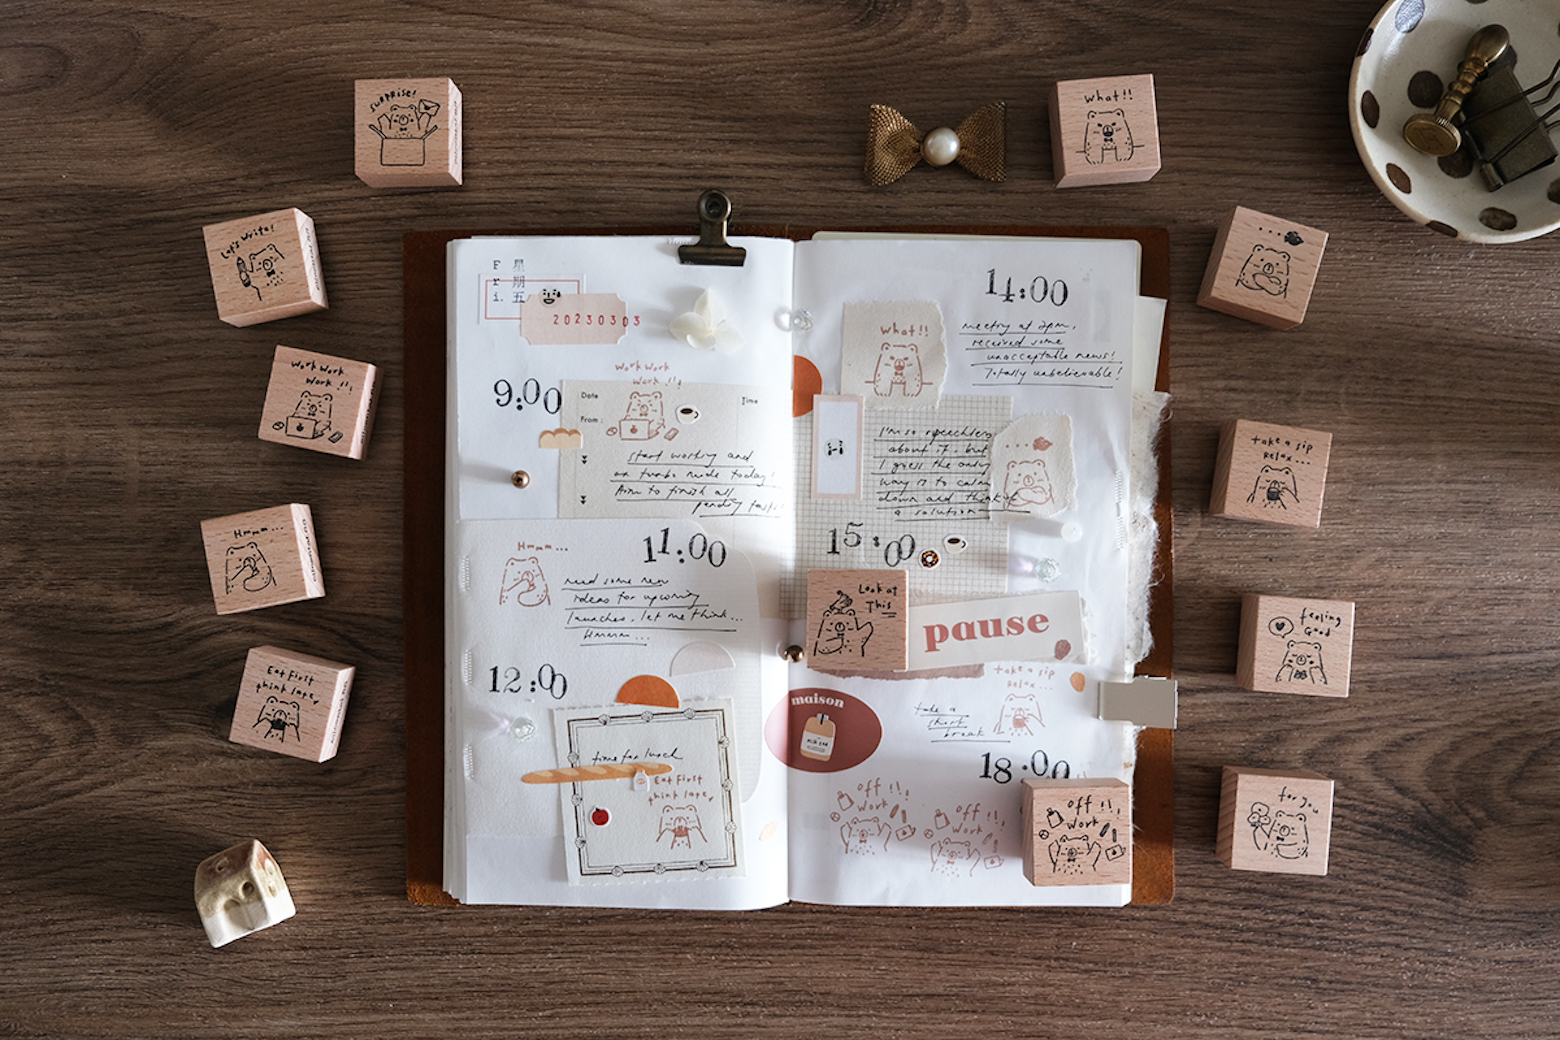 SURPRISE!
Let's Write!
Work Work
Work !!,
Hmmm...
Eat First
think later,
What!!
....
take a sip
Relax...
feeling
Good
for you
Fri.
星期五
20230303
9:00
Work Work
Work !!,
Date
Time
From
start working and
on turbo mode today!
Aim to finish all
pending tasks!
Hmmm...
11:00
need some new
ideas for upcoming
launches, let me think...
Hmmm...
12:00
time for lunch
Eat First
think later,
14:00
What!!
meeting at 2pm,
received some
unacceptable news!
Totally unbelievable!
I'm so speechless
about it, but
I guess the only
way is to calm
down and think of
a solution
....
15:00
Look at
This
pause
take a sip
Relax...
maison
take a
short
break
18:00
off !!,
work
off !!,
work
off !!,
work